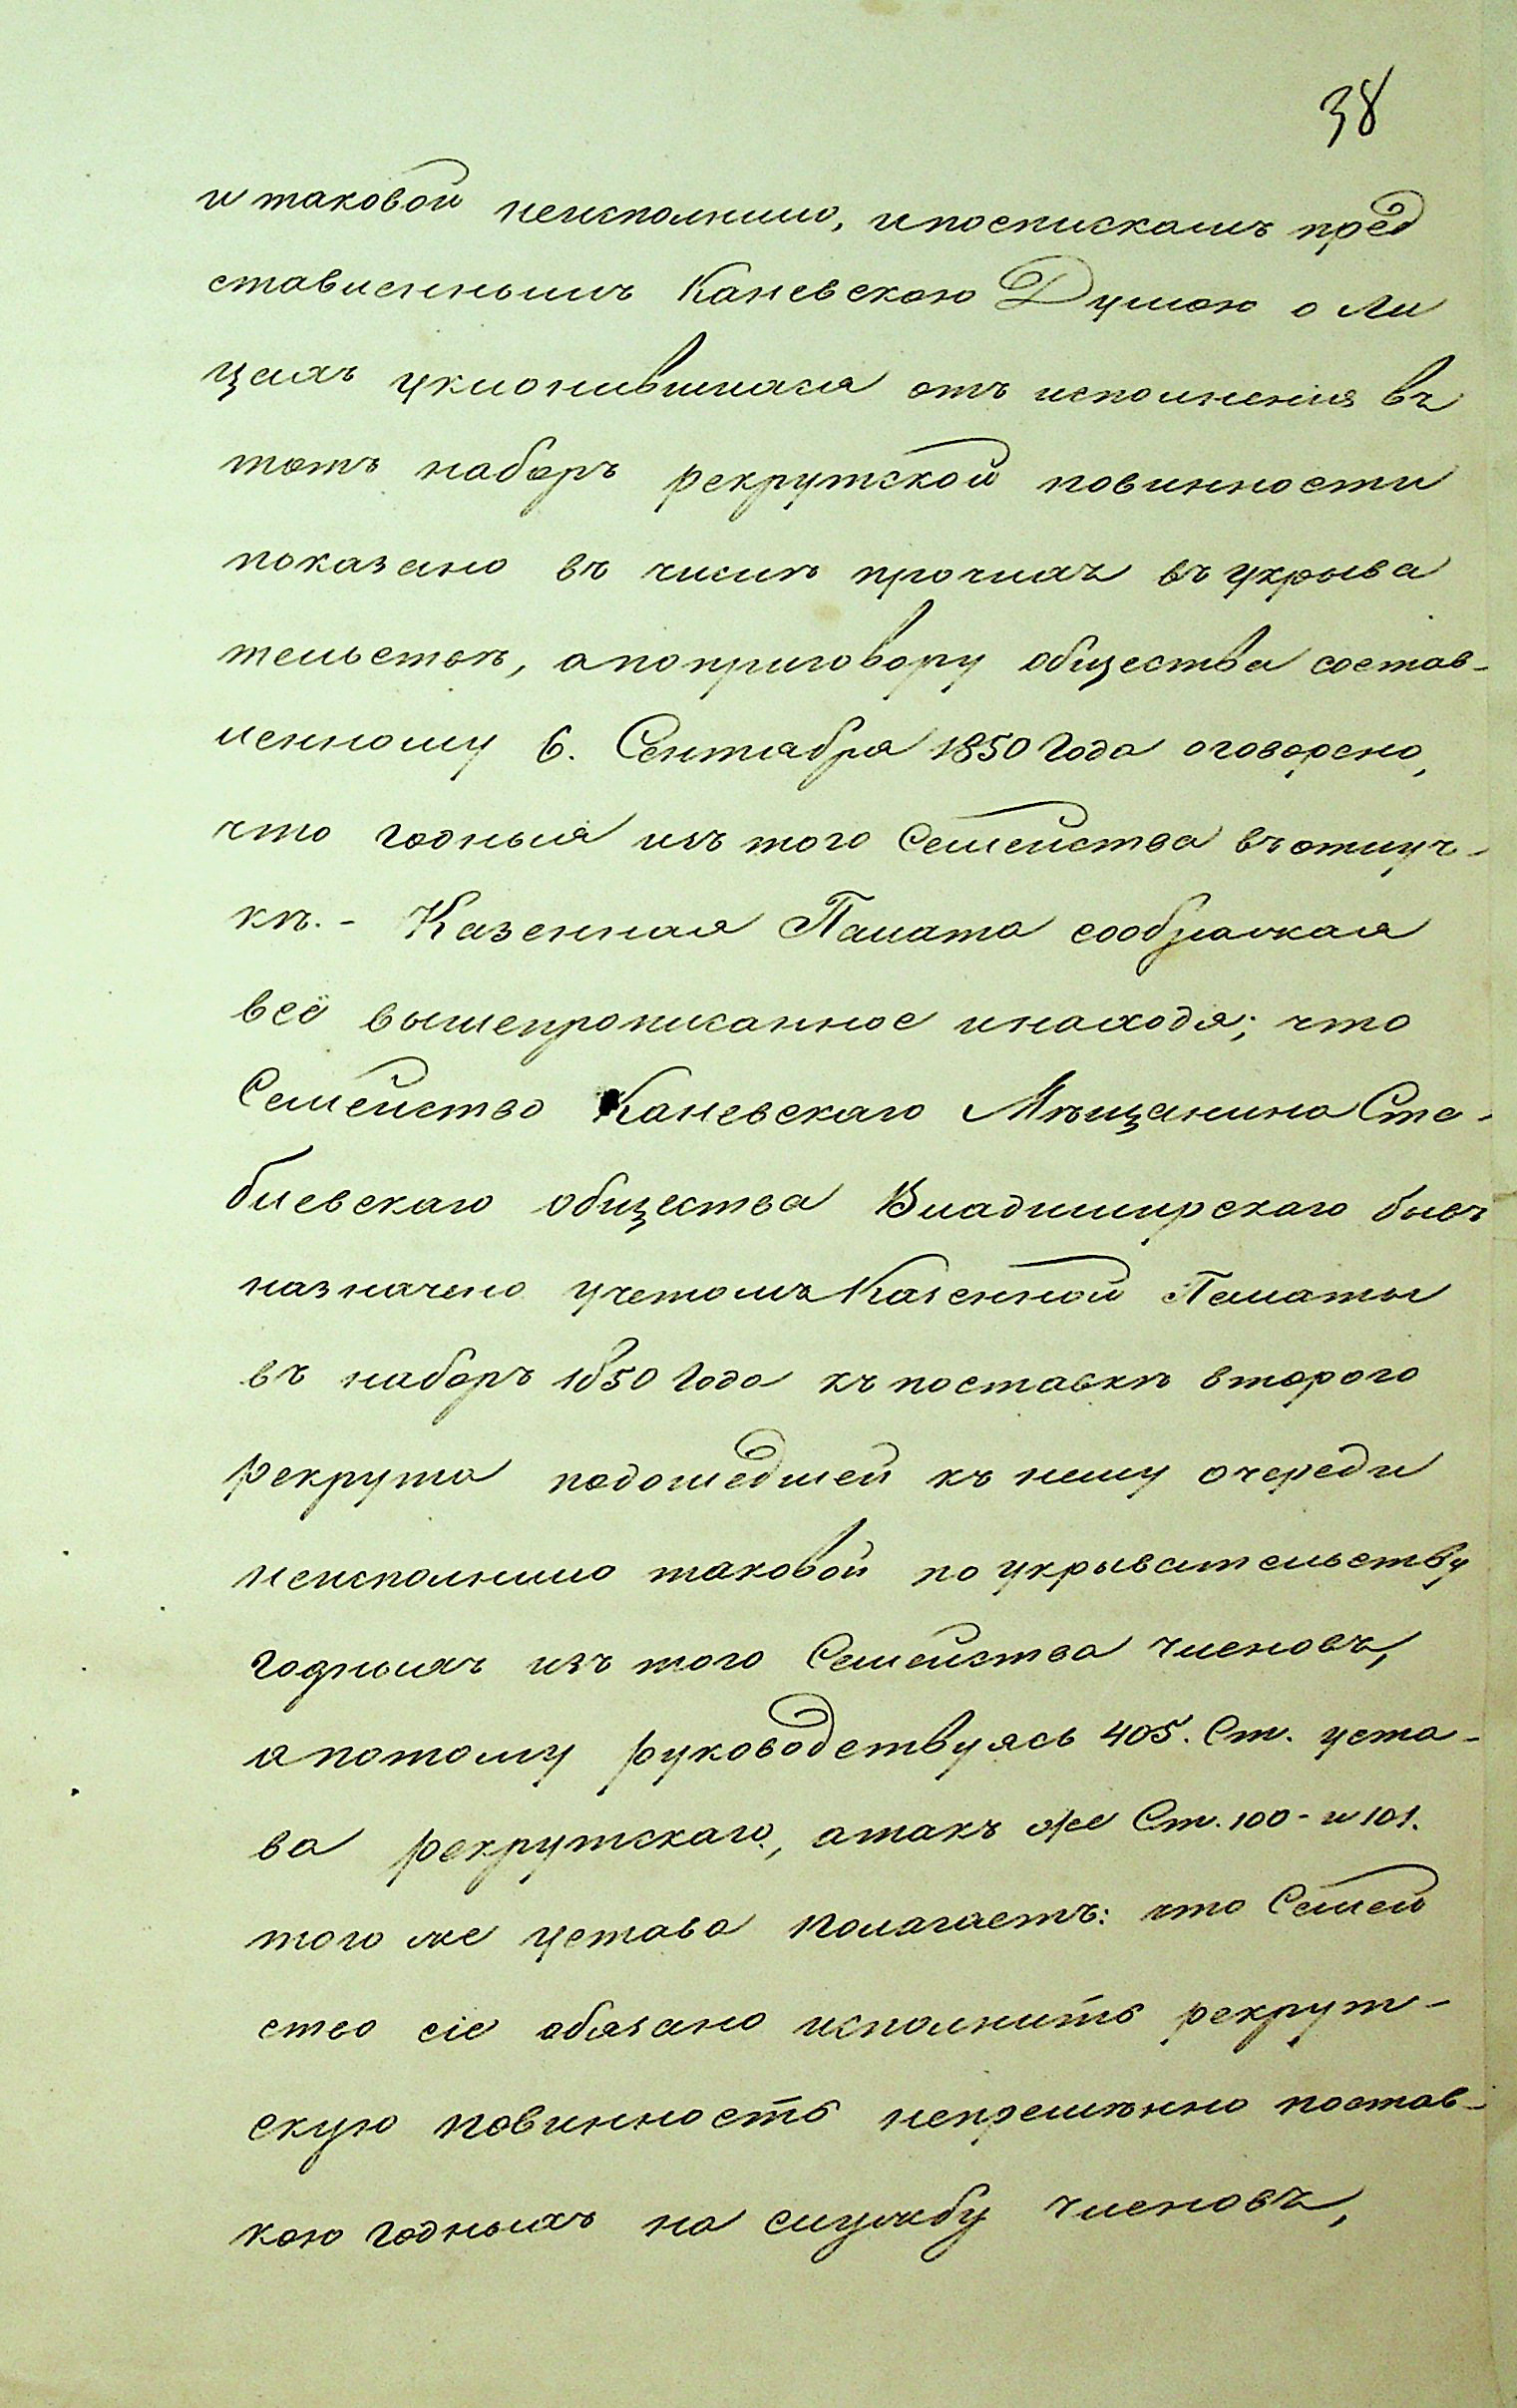 38
и таковой неисполнило, и по спискамъ пред
ставленнымъ Каневскою Думою о ли
цахъ уклонившихся отъ исполненія въ
тотъ наборъ рекрутской повинности
показано въ числѣ прочихъ въ укрыва
тельствѣ, а по приговору общества состав-
ленному 6. Сентября 1850 года оговорено,
что годныя изъ того Семейства въ отлуч-
кѣ. - Казенная Палата соображая
всё вышепрописанное и находя; что
Семейство Каневскаго Мѣщанина Сте-
блевскаго общества Владимирскаго бывъ
назначено учетомъ Казенной Палаты
въ наборъ 1850 года къ поставкѣ второго
рекрута подошедшей къ нему очереди
неисполнило таковой по укрывательству
годныхъ изъ того Семейства членовъ,
а потому руководствуясь 405. Ст. уста-
ва рекрутскаго, а такъ же Ст. 100 - и 101.
того же устава полагаетъ: что Семей
ство сіе обязано исполнить рекрут-
скую повинность непремѣнно постав-
кою годныхъ на службу членовъ,